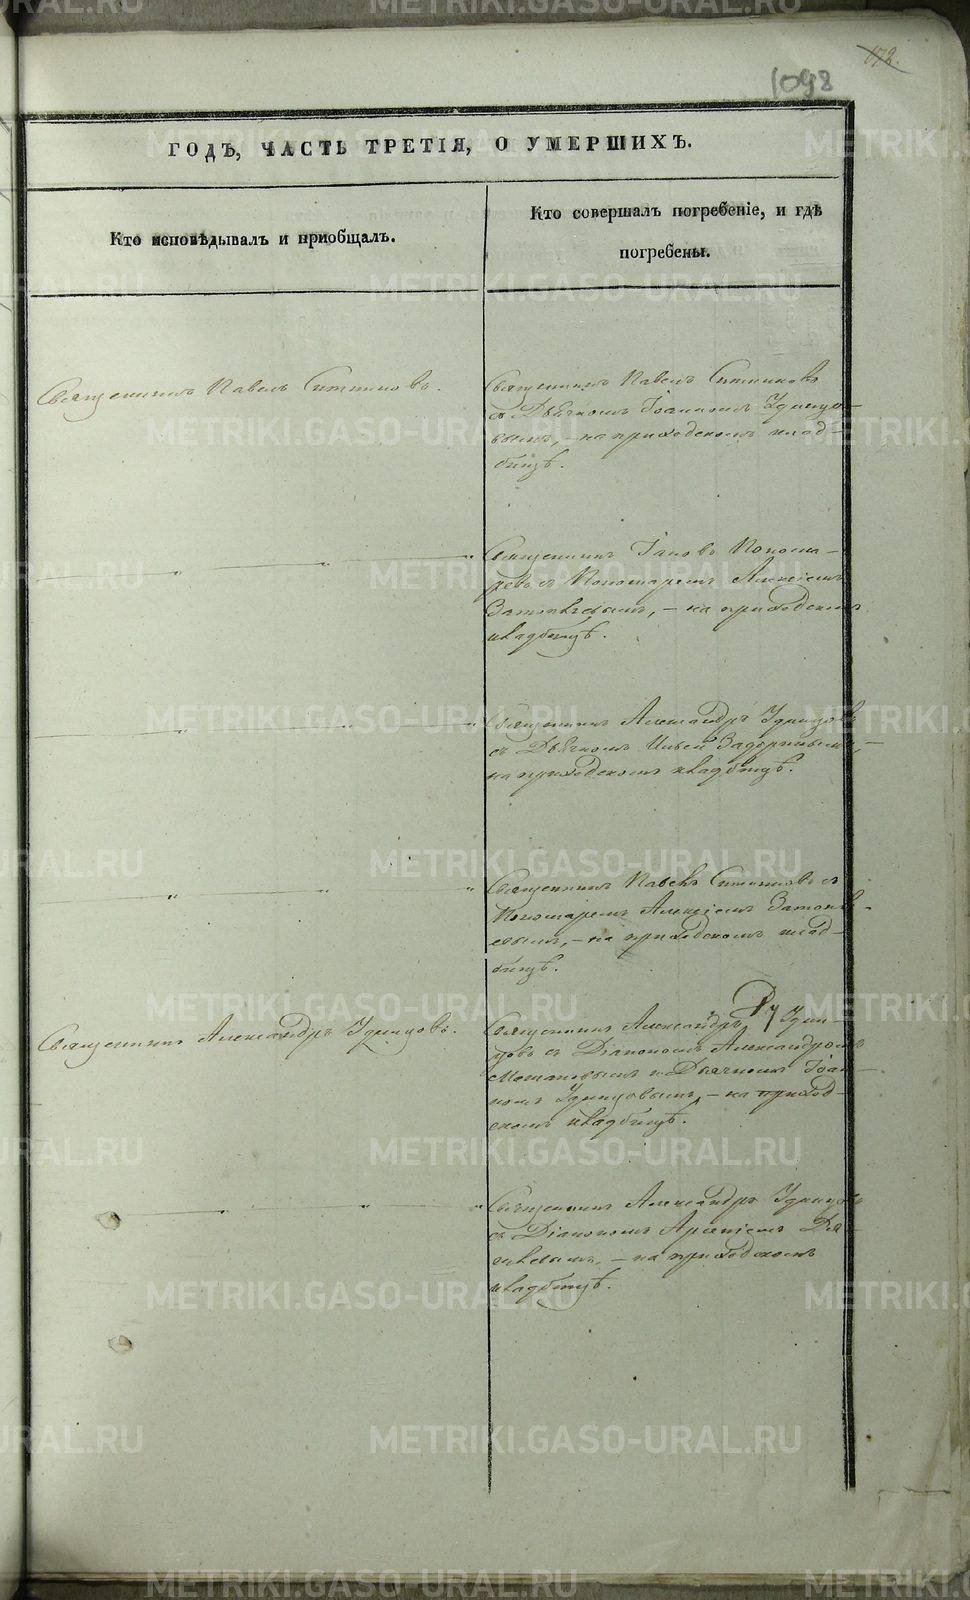 1098
172.
ГОДЪ, ЧАСТЬ ТРЕТІЯ, О УМЕРШИХЪ.
Кто исповѣдывалъ и пріобщалъ.
Кто совершалъ погребеніе, и гдѣ
погребены.
Священникъ Павелъ Ситниковъ.
Священникъ Павелъ Ситниковъ
съ Дьячкомъ Іоанномъ Удинцо-
вымъ, – на приходскомъ клад-
бищѣ.
Священникъ Іаковъ Понома-
ревъ съ Пономаремъ Алексіемъ
– на приходскомъ
кладбищѣ.
Священникъ Александръ Удинцовъ
съ Дьячкомъ Ильей Задоринымъ, –
на приходскомъ кладбищѣ.
Священникъ Павелъ Ситниковъ съ
Пономаремъ Алексіемъ
– на приходскомъ клад-
бищѣ.
Священникъ Александръ Удинцовъ.
Священникъ Александръ Удин-
цовъ съ Діакономъ Александромъ
и Дьячкомъ Іоан-
номъ Удинцовымъ, – на приход-
скомъ кладбищѣ.
Священникъ Александръ Удинцовъ
съ Діакономъ Арсеніемъ
– на приходскомъ
кладбищѣ.
METRIKI.GASO-URAL.RU